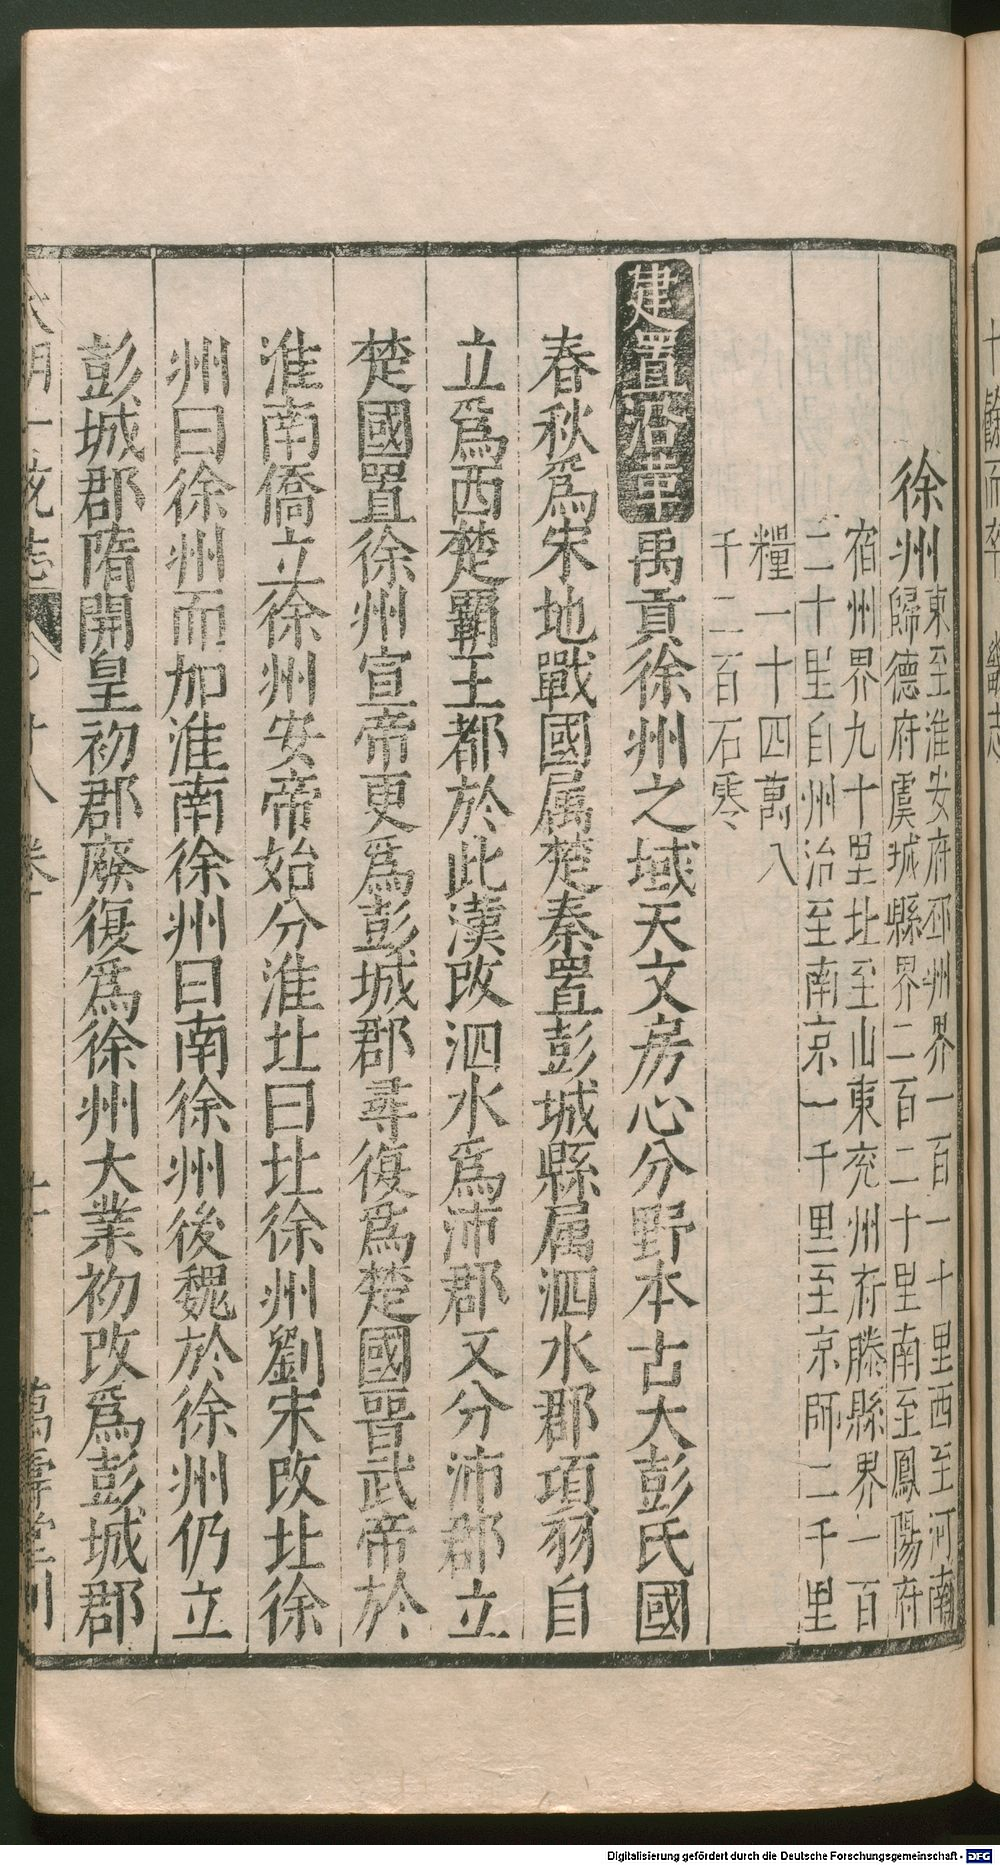 徐州東至淮安府邳州界一百一十里西至河南
歸德府虞城縣界二百二十里南至鳳陽府
宿州界九十里北至山東兖州府滕縣界一百
二十里自州治至南京一千里至京師二千里
糧一十四萬八
千二百石零
建置沿革禹貢徐州之域天文房心分野本古大彭氏國
春秋爲宋地戰國属楚秦置彭城縣属泗水郡項羽自
立爲西楚霸王都於此漢改泗水爲沛郡又分沛郡立
楚國置徐州宣帝更爲彭城郡尋復爲楚國晉武帝於
淮南僑立徐州安帝始分淮北曰北徐州劉宋改北徐
州曰徐州而加淮南徐州曰南徐州後魏於徐州仍立
彭城郡隋開皇初郡廢復爲徐州大業初改爲彭城郡
Digitalisierung gefördert durch die Deutsche Forschungsgemeinschaft - DFG